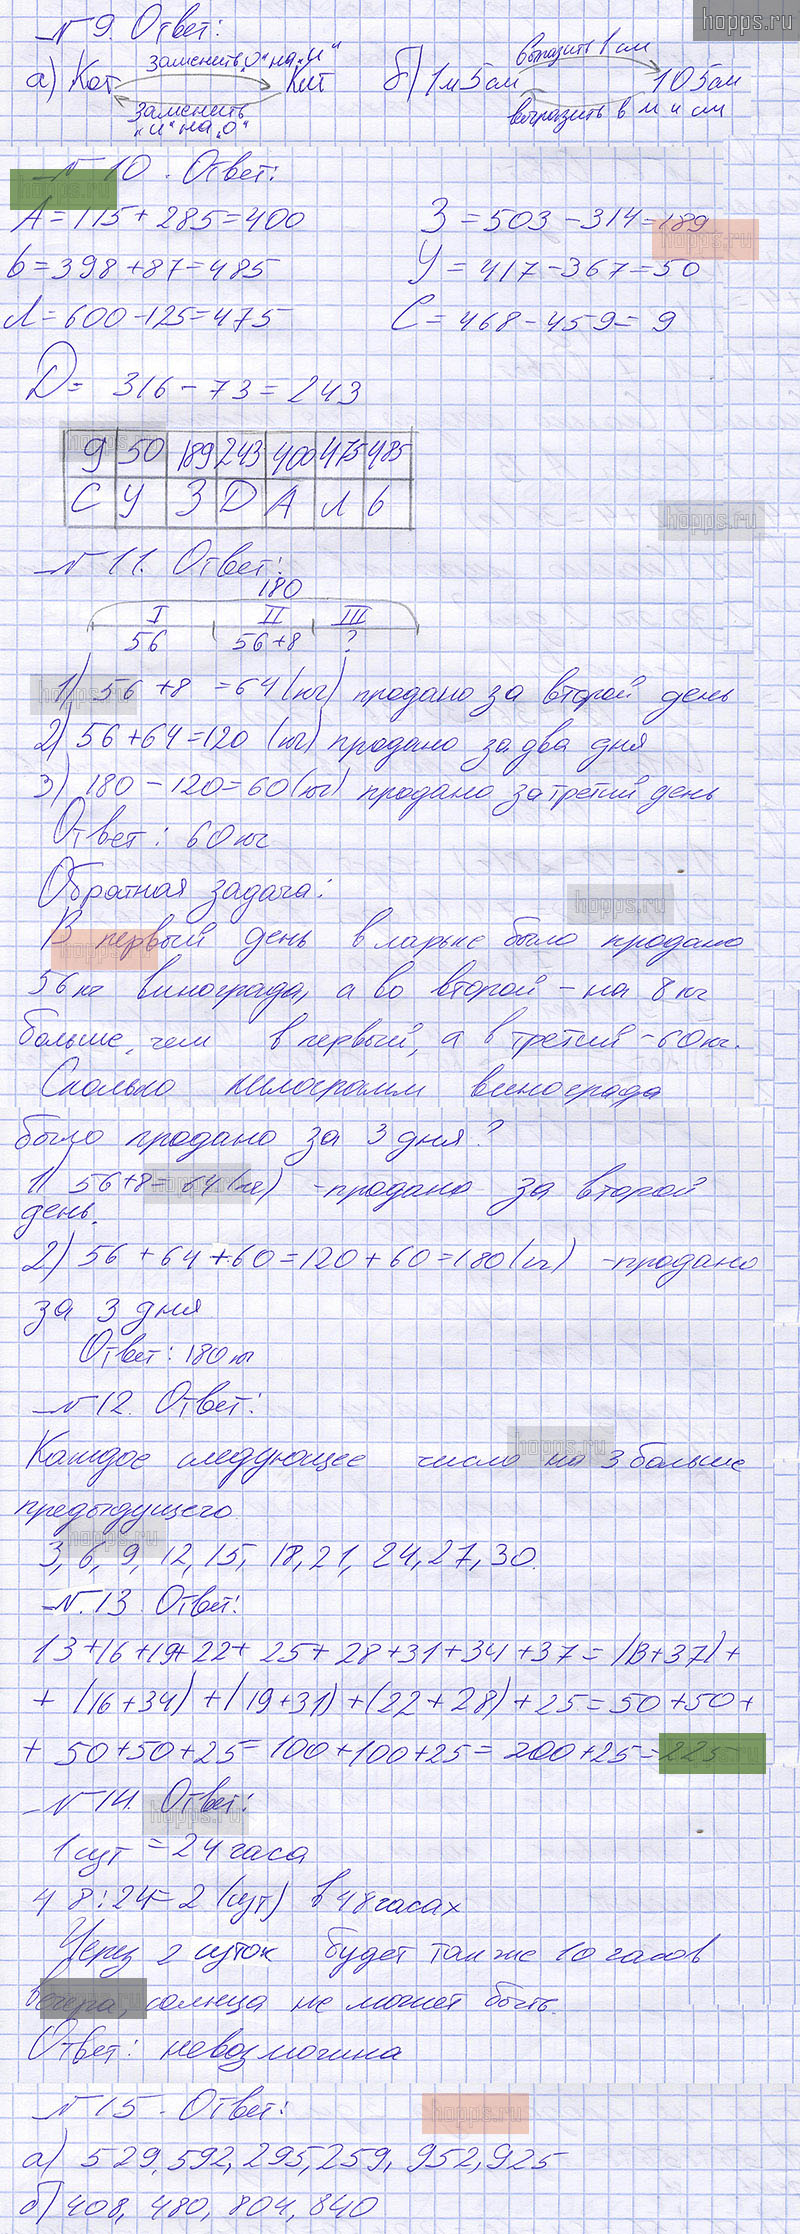 hopps.ru
№ 9. Ответ:
заменить „о“ на „и“
выразить в см
а) Кот Кит б) 1м 5см 105см
заменить „и“ на „о“
выразить в м и см
№ 10. Ответ:
А = 115 + 285 = 400 З = 503 - 314 = 189
Ь = 398 + 87 = 485 У = 417 - 367 = 50
Л = 600 - 125 = 475 С = 468 - 459 = 9
Д = 316 - 73 = 243
9 50 189 243 400 475 485
С У З Д А Л Ь
№ 11. Ответ:
180
I II III
56 56+8 ?
1) 56 + 8 = 64 (кг) продано за второй день
2) 56 + 64 = 120 (кг) продано за два дня
3) 180 - 120 = 60 (кг) продано за третий день
Ответ: 60 кг
Обратная задача:
В первый день в ларьке было продано
56 кг винограда, а во второй - на 8 кг
больше, чем в первый, а в третий - 60 кг.
Сколько килограмм винограда
было продано за 3 дня?
1) 56 + 8 = 64 (кг) - продано за второй
день.
2) 56 + 64 + 60 = 120 + 60 = 180 (кг) - продано
за 3 дня
Ответ: 180 кг
№ 12. Ответ:
Каждое следующее число на 3 больше
предыдущего.
3, 6, 9, 12, 15, 18, 21, 24, 27, 30.
№ 13. Ответ:
13 + 16 + 19 + 22 + 25 + 28 + 31 + 34 + 37 = (13 + 37) +
+ (16 + 34) + (19 + 31) + (22 + 28) + 25 = 50 + 50 +
+ 50 + 50 + 25 = 100 + 100 + 25 = 200 + 25 = 225
№ 14. Ответ:
1 сут = 24 часа
48 : 24 = 2 (сут) в 48 часах
Через 2 суток будет также 10 часов
вечера, солнца не может быть.
Ответ: невозможна
№ 15. Ответ:
а) 529, 592, 295, 259, 952, 925
б) 408, 480, 804, 840